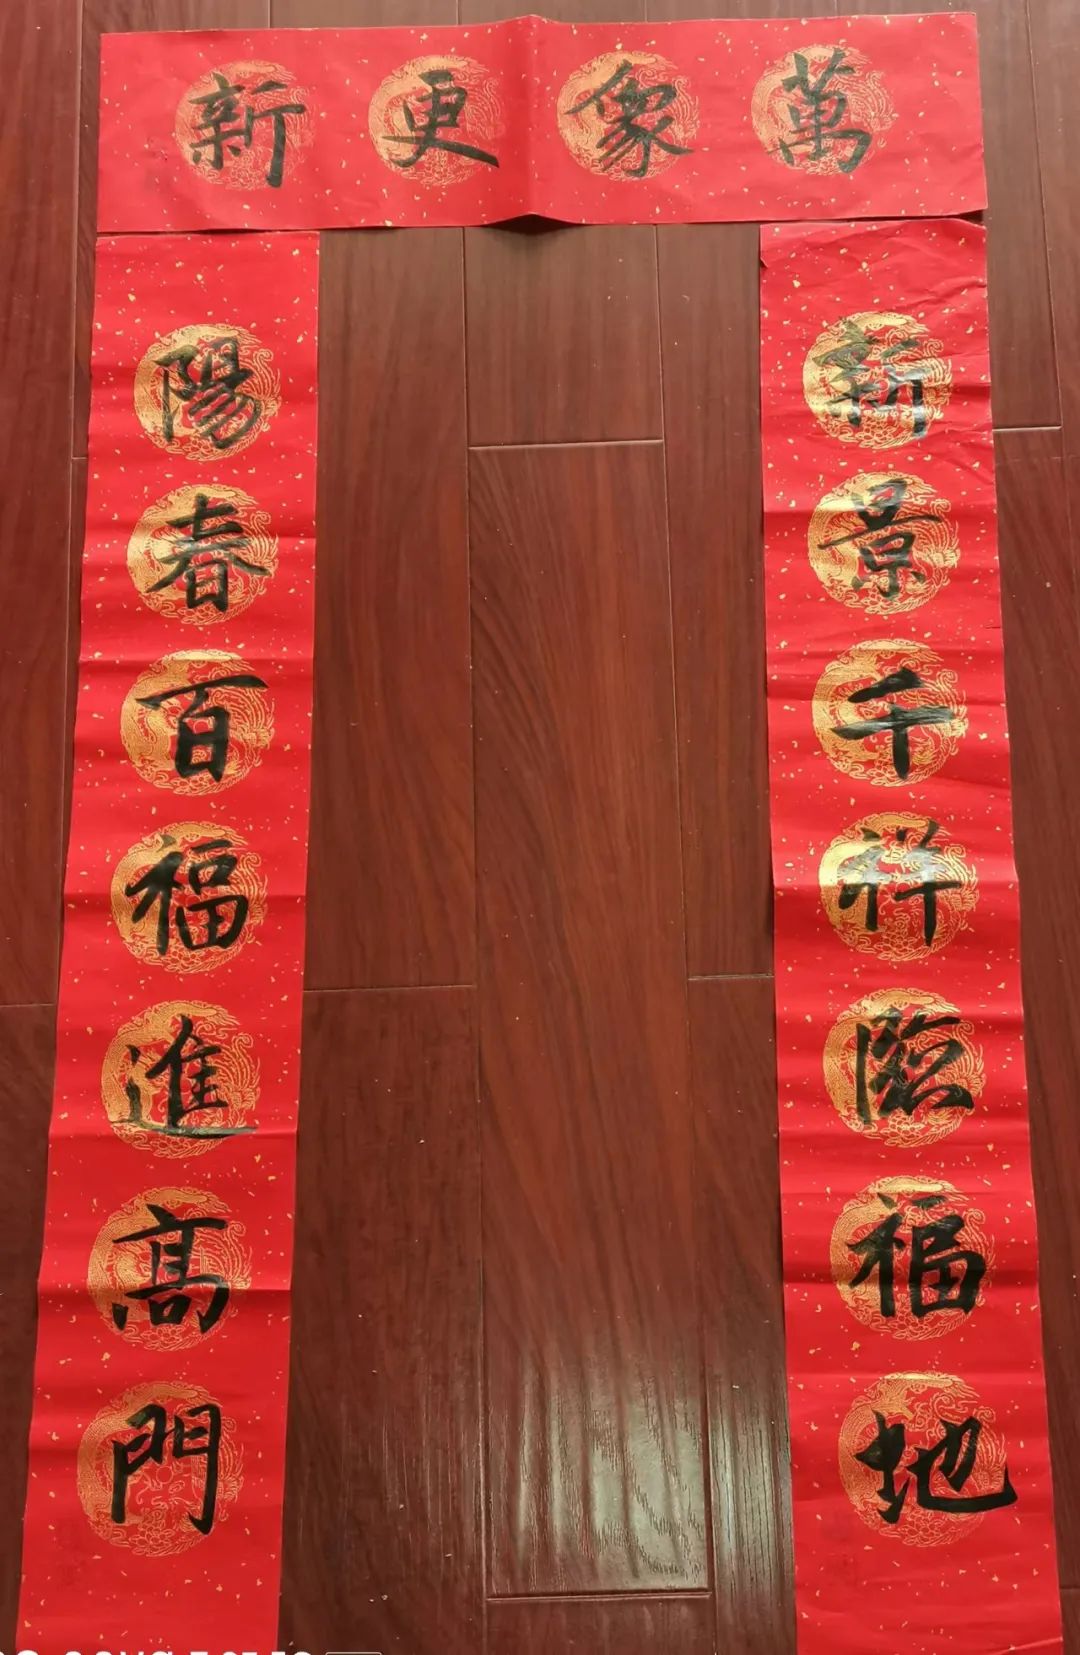 萬象更新
新景千祥臨福地
陽春百福進高門